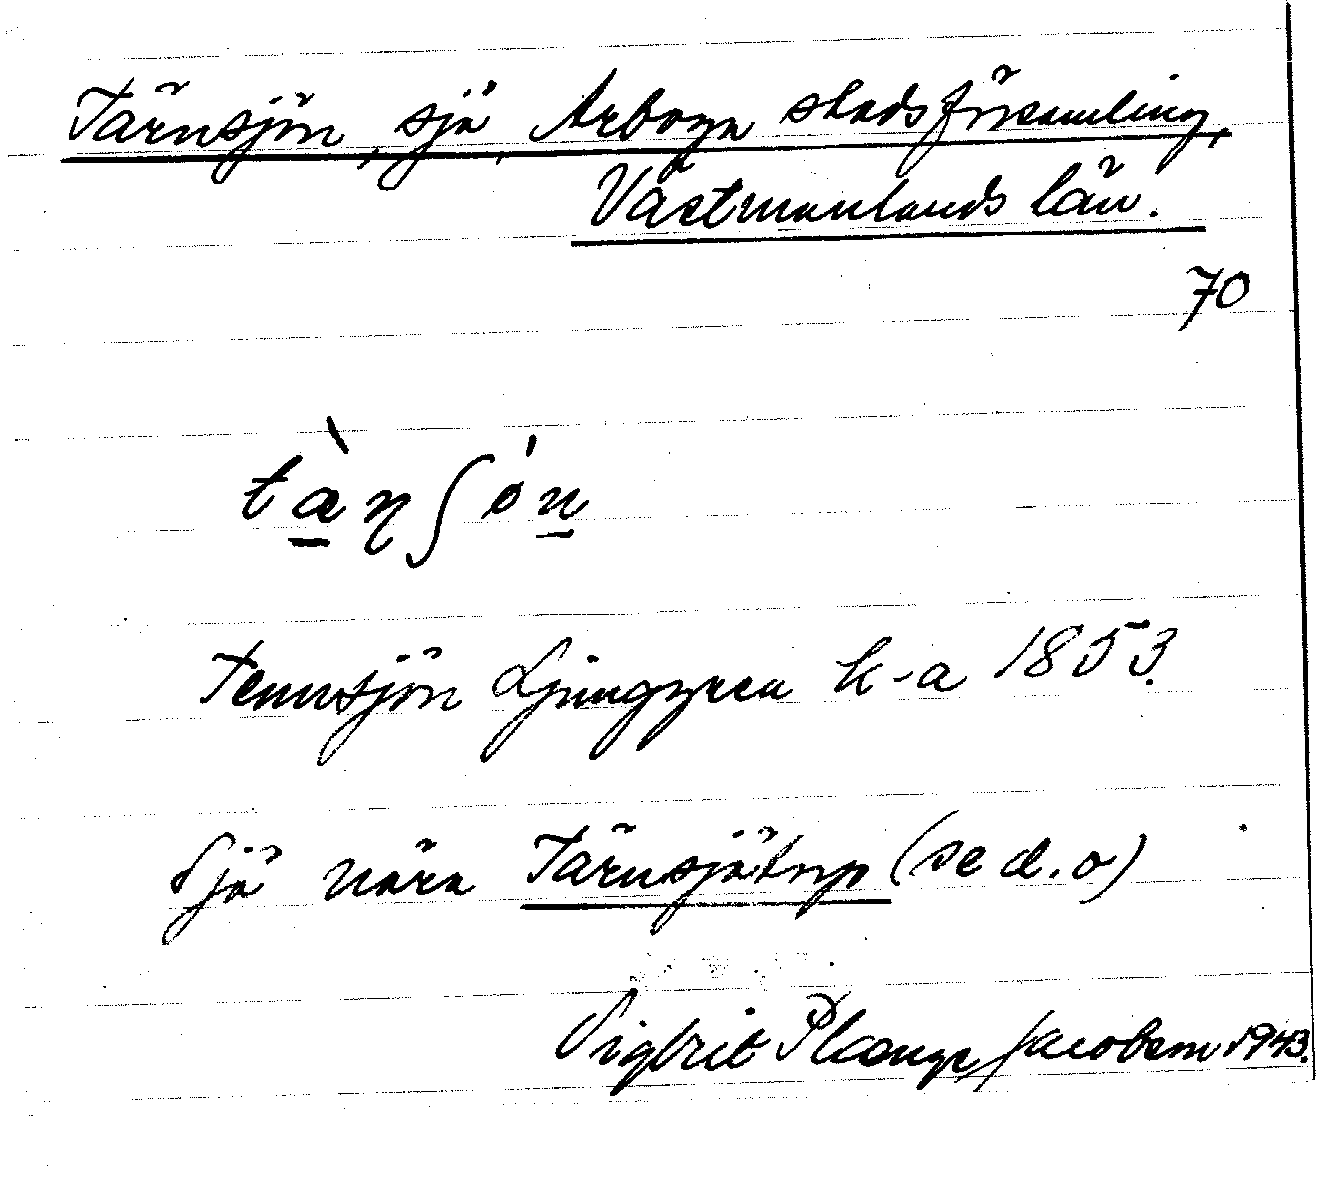 Tärnsjön, sjö, Arboga stadsförsamling,
Västmanlands län.
70
tæ̠̀ɳʃǿn̠
Tennsjön Ljunggren k-a 1853.
Sjö nära Tärnsjötorp (se d.o)
Sigbrit Plænge Jacobson 1943.